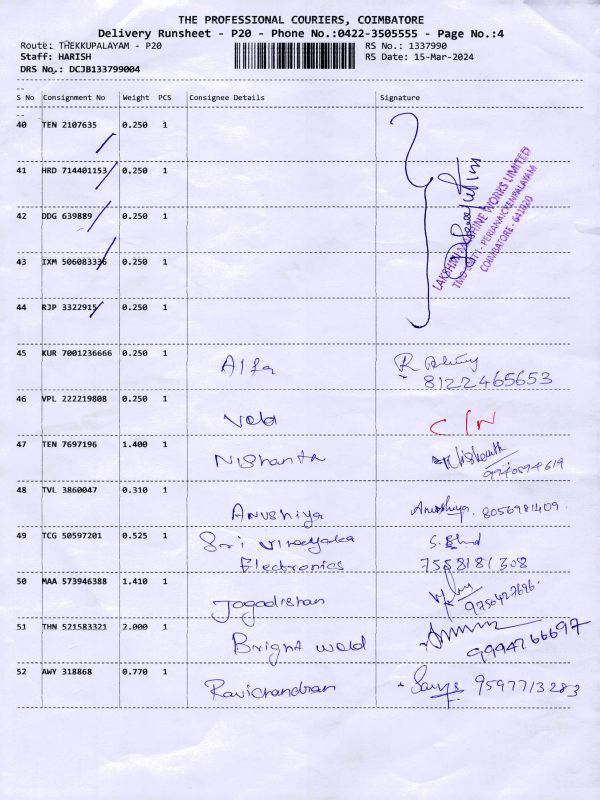 THE PROFESSIONAL COURIERS, COIMBATORE
Delivery Runsheet - P20 - Phone No.:0422-3505555 - Page No.:4
Route: THEKKUPALAYAM - P20
RS No.: 1337990
Staff: HARISH
RS Date: 15-Mar-2024
DRS No.: DCJB133799004
S No Consignment No Weight PCS Consignee Details Signature
40 TEN 2107635 0.250 1
41 HRD 714401153 0.250 1
42 DDG 639889 0.250 1
43 IXM 506083336 0.250 1
44 RJP 3322915 0.250 1
LAKSHMI MACHINE WORKS LIMITED
PERIANAICKENPALAYAM
COIMBATORE - 641020
45 KUR 7001236666 0.250 1
Alfa
8122465653
46 VPL 222219808 0.250 1
C/N
47 TEN 7697196 1.400 1
Nishanta
48 TVL 3860047 0.310 1
Anushiya Anushiya. 8056981409.
49 TCG 50597201 0.525 1
Sri Vinayaka
Electronics 7558181308
50 MAA 573946388 1.410 1
Jagadishan
51 THN 521583321 2.000 1
Bright weld 9994766697
52 AWY 318868 0.770 1
Ravichandran 9597713283